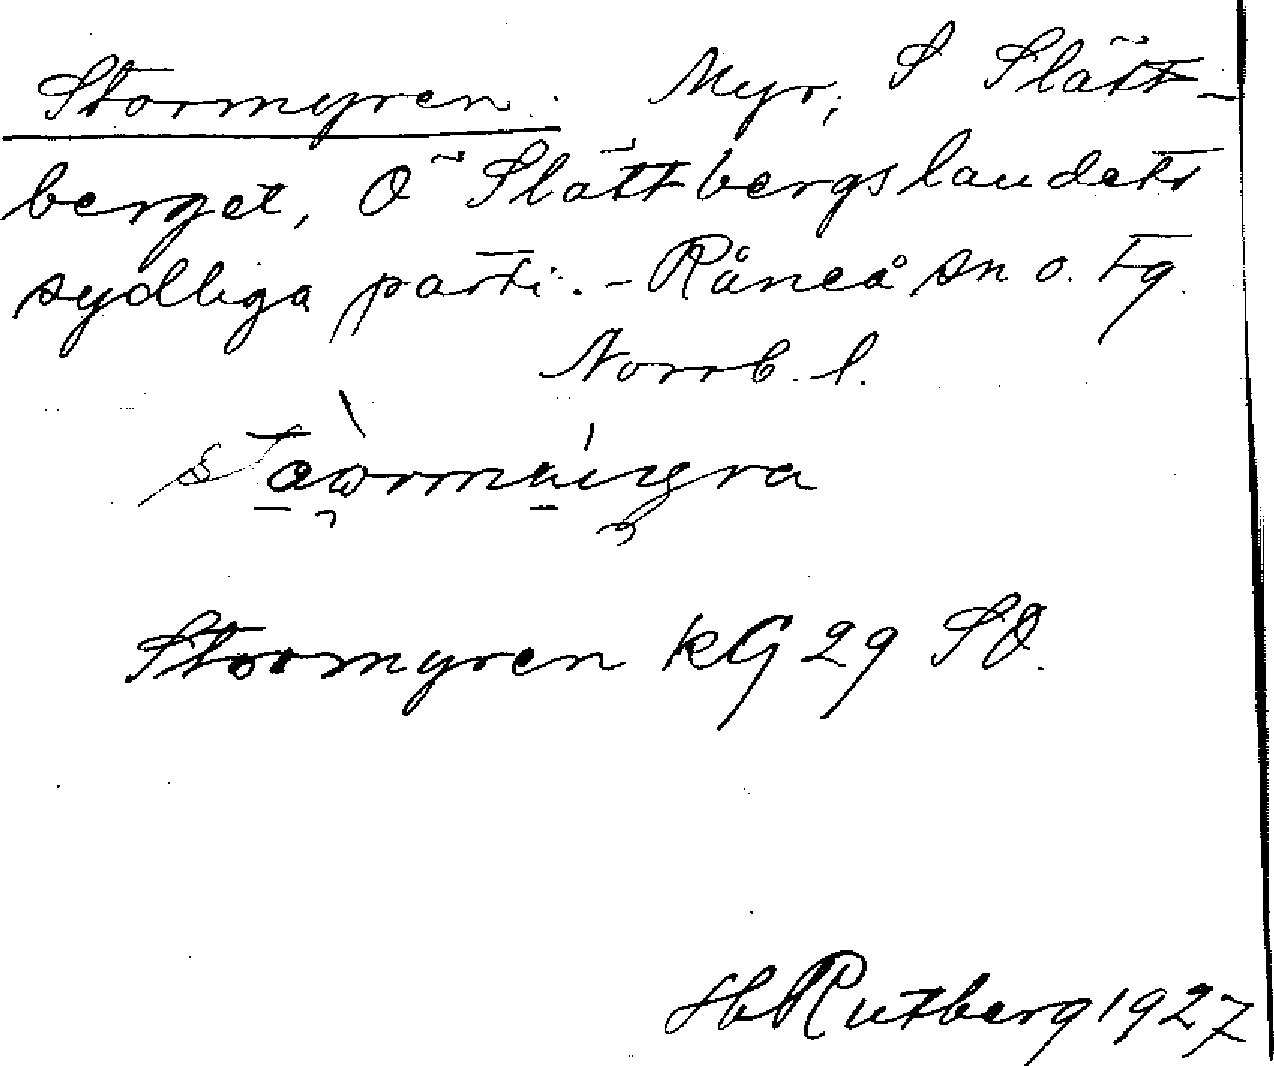 Stormyren. Myr, S Slätt-
berget, Ö Slättbergslandets
sydliga parti. - Råneå sn o. tg.
Norrb. l.
Stormyren KG 29 SO.
H Rutberg 1927